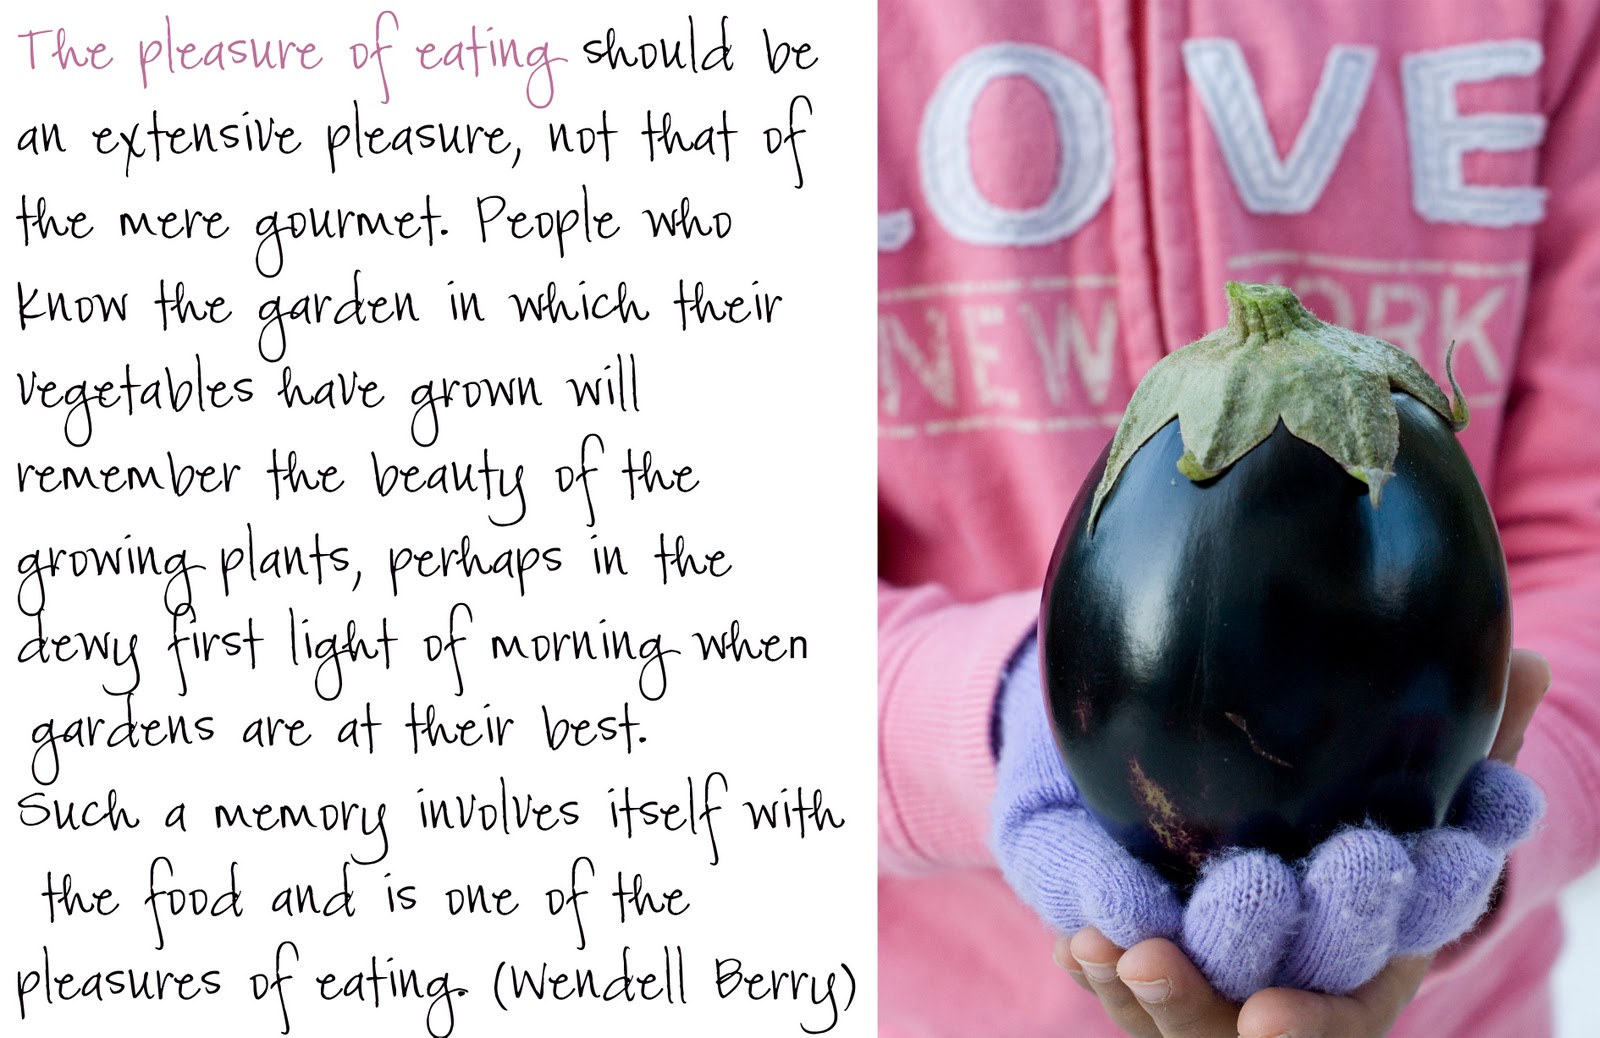 The pleasure of eating should be
an extensive pleasure, not that of
the mere gourmet. People who
know the garden in which their
vegetables have grown will
remember the beauty of the
growing plants, perhaps in the
dewy first light of morning when
gardens are at their best.
Such a memory involves itself with
the food and is one of the
pleasures of eating. (Wendell Berry)
LOVE
NEW YORK